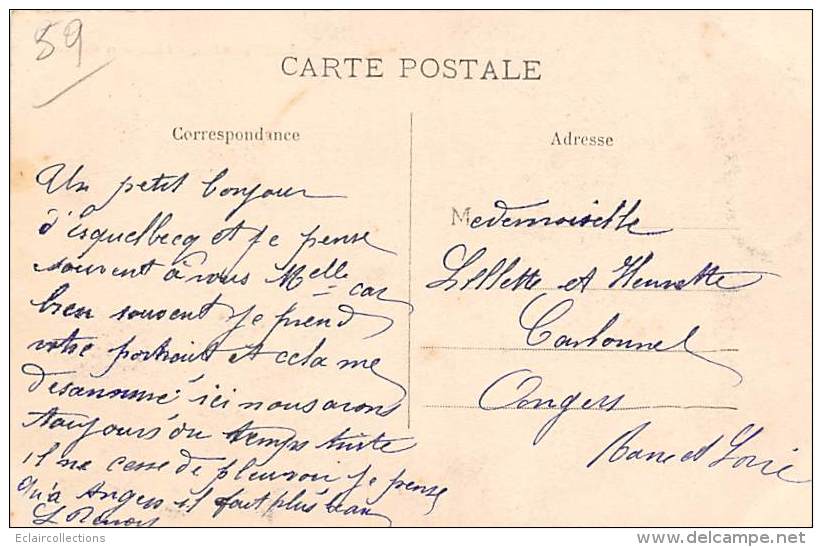 59
CARTE POSTALE
Correspondance
Un petit bonjour
d'Esquelbecq et je pense
souvent à vous Melle car
bien souvent je prend
votre portrait et cela me
desannuié ici nous avons
toujours du temps triste
il ne cesse de pleuvoir je pense
qu'à Angers il fait plus beau
Adresse
Medemoiselle
Lillette et Henriette
Carbonnel
Angers
Maine et Loire
Eclaircollections
www.delcampe.net